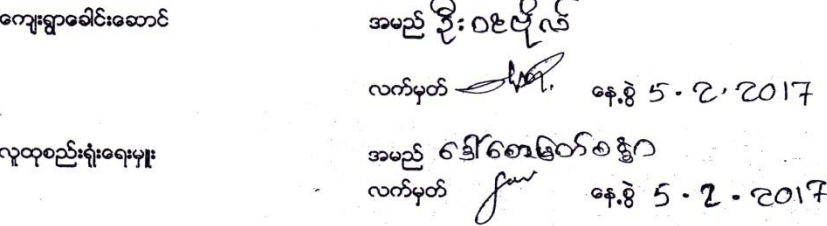 ကျေးရွာခေါင်းဆောင် အမည် ဦးဝင်းဗိုလ်
လက်မှတ် နေ့စွဲ 5.2.2017
လူထုစည်းရုံးရေးမှူး အမည် ဒေါ်စောမြတ်စန္ဒာ
လက်မှတ် နေ့စွဲ 5.2.2017